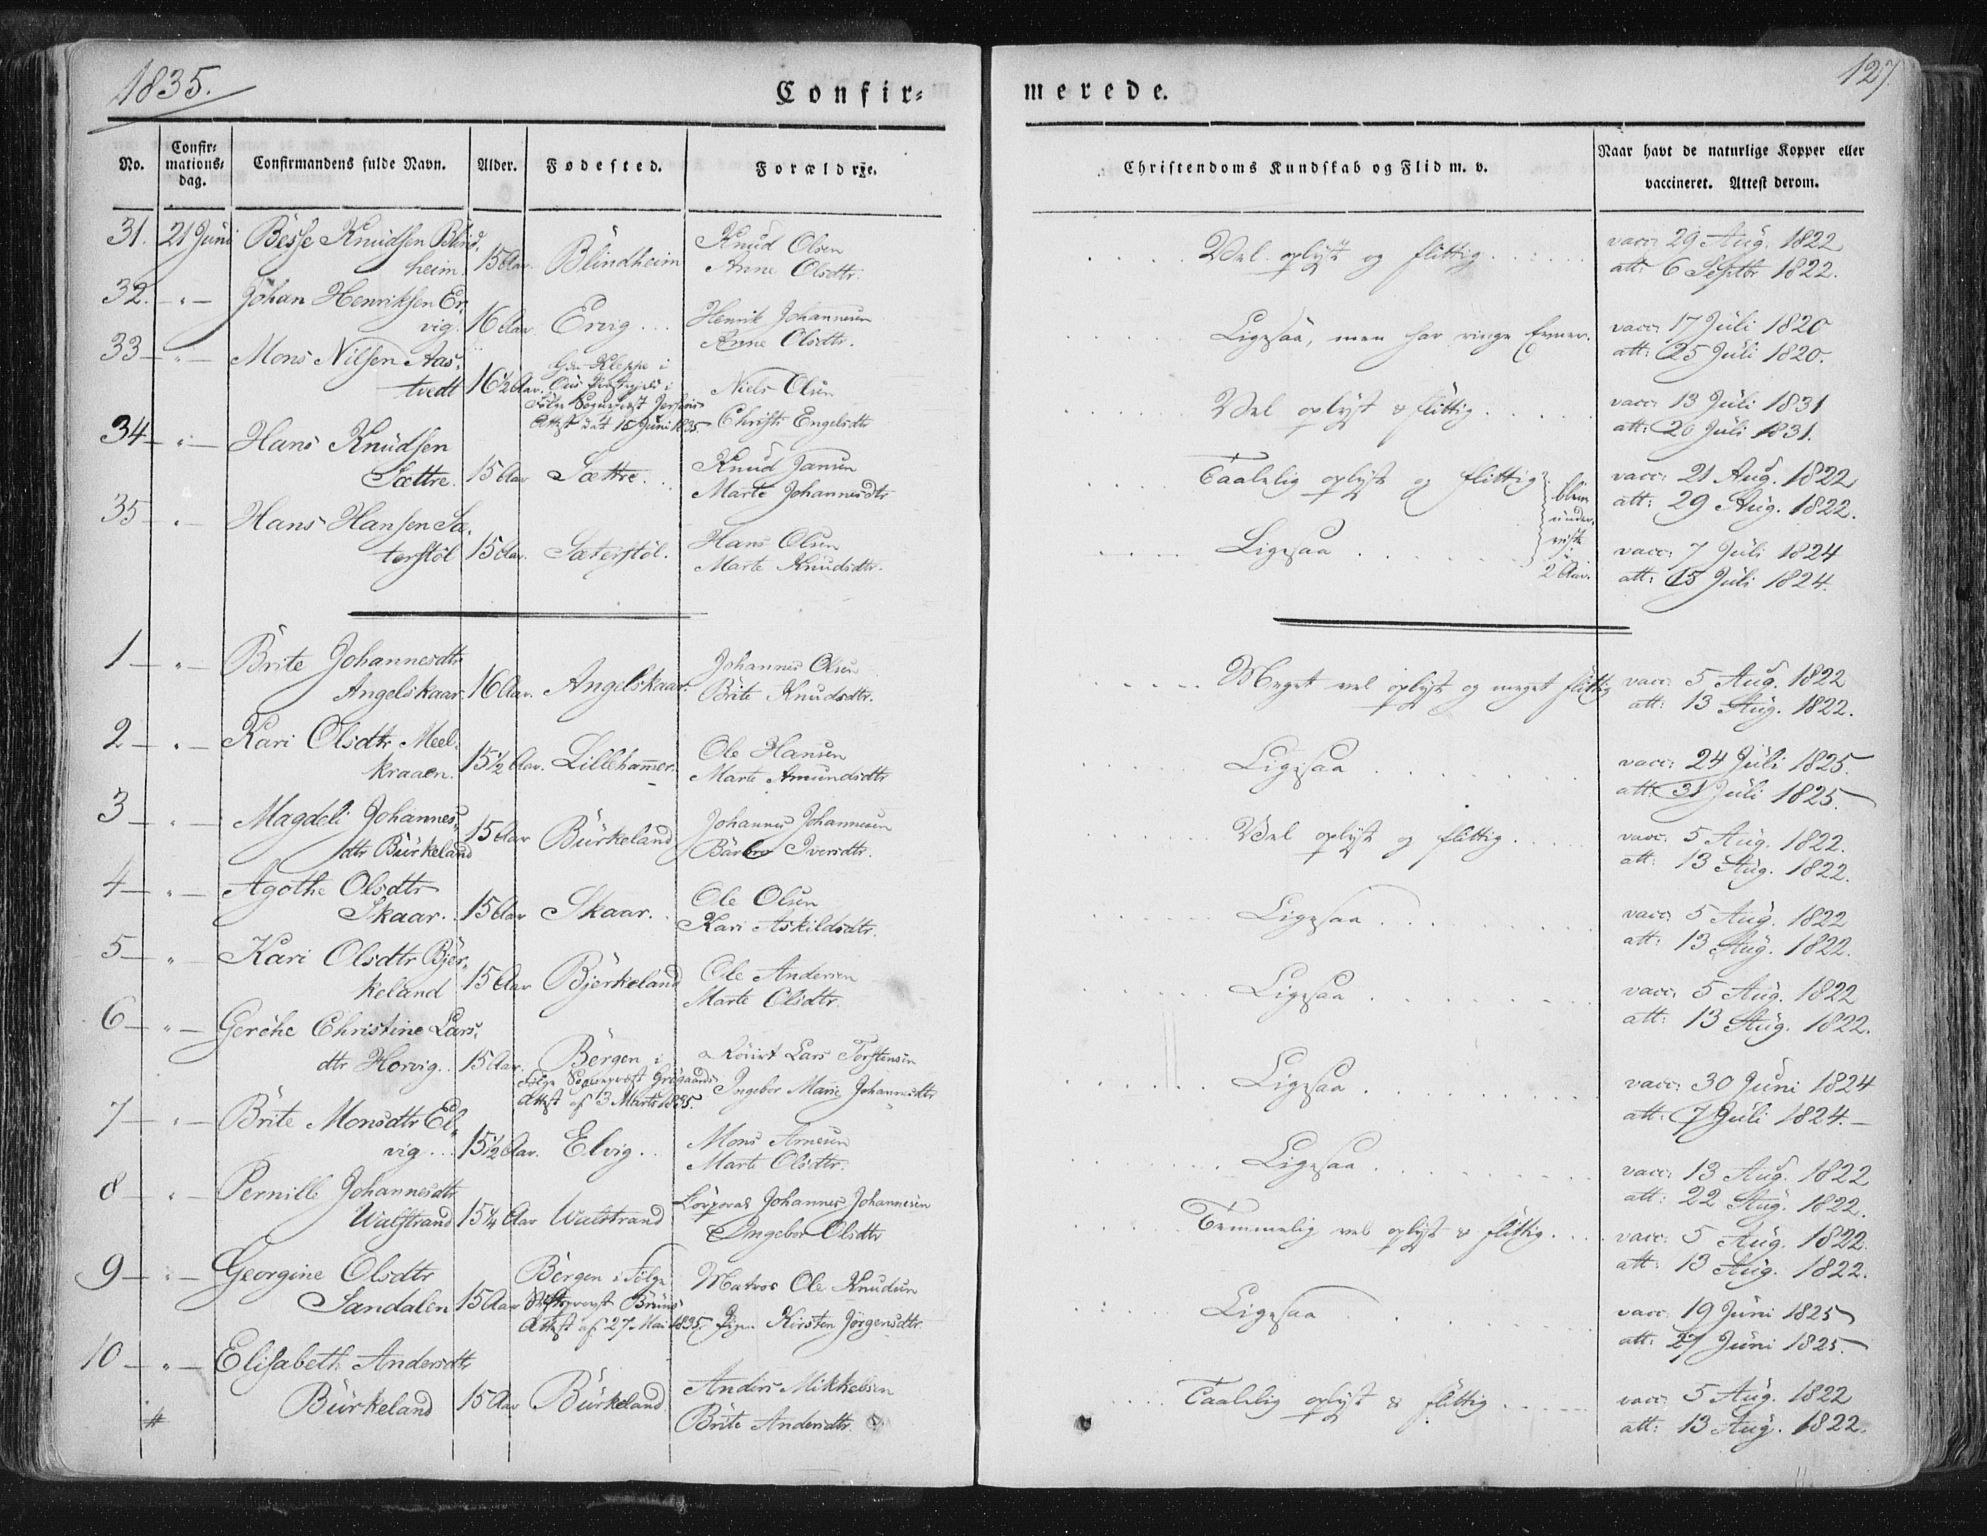 1835.
127.
Confir-
merede.
No.
Confir-
mations-
dag.
Confirmandens fulde Navn.
Alder.
Fødested.
Forældre.
Christendoms Kundskab og Flid m. v.
Naar havt de naturlige Kopper eller
vaccineret. Attest derom.
31. 21 Juni Besse Knudsen Blind-
heim. 15 Aar. Blindheim
Knud Olsen
Anne Olsdtr.
Vel oplyst og flittig
vacc: 29 Aug. 1822
att: 6 Septbr 1822.
32. - " - Johan Henriksen Er-
vig. 16 Aar. Ervig
Henrik Johannesen
Anne Olsdtr.
Ligesaa, men har ringe Evner.
vacc: 17 Juli 1820
att: 25 Juli 1820.
33 - " - Mons Nilsen Aas-
tvedt 16½ Aar.
Kleppe i
Ous Præstegjeld i
Følge Sogneprest
Attest dat 15 Juni 1835
Niels Olsen
Christi Engelsdtr
Vel oplyst & flittig
vacc: 13 Juli 1831
att: 20 Juli 1831.
34 - " - Hans Knudsen
Sættre. 15 Aar Sættre.
Knud Jansen
Marte Johannesdtr
Taalelig oplyst og flittig
blev
under-
viiste
i
2 Aar.
vacc: 21 Aug. 1822
att: 29 Aug. 1822.
35 - " - Hans Hansen Sæ-
terstöl 15 Aar. Sæterstöl.
Hans Olsen
Marte Knudsdtr.
Ligesaa
vacc: 7 Juli 1824
att: 15 Juli 1824.
1 - " - Brite Johannesdtr
Angelskaar. 16 Aar. Angelskaar.
Johannes Olsen
Brite Knudsdtr.
Meget vel oplyst og meget flittig
vacc: 5 Aug. 1822
att: 13 Aug. 1822.
2 - " - Kari Olsdtr Meel-
kraaen. 15½ Aar. Lillehammer.
Ole Hansen
Marte Amundsdtr
Ligesaa
vacc: 24 Juli 1825.
att: 31 Juli 1825.
3 - " - Magdeli Johannes-
dtr Bürkeland 15 Aar Bürkeland
Johannes Johannesen
Barbro Iversdtr.
Vel oplyst og flittig
vacc: 5 Aug. 1822.
att: 13 Aug. 1822.
4 - " - Agothe Olsdtr
Skaar. 15 Aar Skaar.
Ole Olsen
Kari Askildsdtr.
Ligesaa
vacc: 5 Aug. 1822
att: 13 Aug. 1822.
5 - " - Kari Olsdtr Bjer-
keland 15 Aar Bjerkeland
Ole Andersen
Marte Olsdtr.
Ligesaa
vacc: 5 Aug. 1822
att: 13 Aug. 1822.
6 - " - Gerche Christine Lars-
dtr Horvig. 15 Aar. Bergen i
Følge Sogneprest Grögaards
Attest af 13 Marts 1835.
Lars Torstensen
Ingebor Marie Johannesdtr
Ligesaa
vacc: 30 Juni 1824
att: 7 Juli 1824.
7 - " - Brite Monsdtr El-
vig 15½ Aar. Elvig
Mons Arnesen
Marte Olsdtr.
Ligesaa
vacc: 13 Aug. 1822
att: 22 Aug. 1822.
8 - " - Pernille Johannesdtr
Walstrand 15¼ Aar Walstrand
Corporal Johannes Johannesen
Ingebor Olsdtr
Temmelig vel oplyst & flittig
vacc: 5 Aug. 1822.
att: 13 Aug. 1822.
9 - " - Georgine Olsdtr
Sandalen 15 Aar Bergen i Følge
Stiftsprovst Bruns
Attest af 27 Mai 1835.
Matros Ole Knudsen
Pigen Kirsten Jörgensdtr.
Ligesaa
vacc: 19 Juni 1825
att: 27 Juni 1825.
10 - " - Elisabeth Andersdtr
Bürkeland 15 Aar Bürkeland
Anders Mikkelsen
Brite Andersdtr.
Taalelig oplyst & flittig
vacc: 5 Aug. 1822
att: 13 Aug. 1822.
#